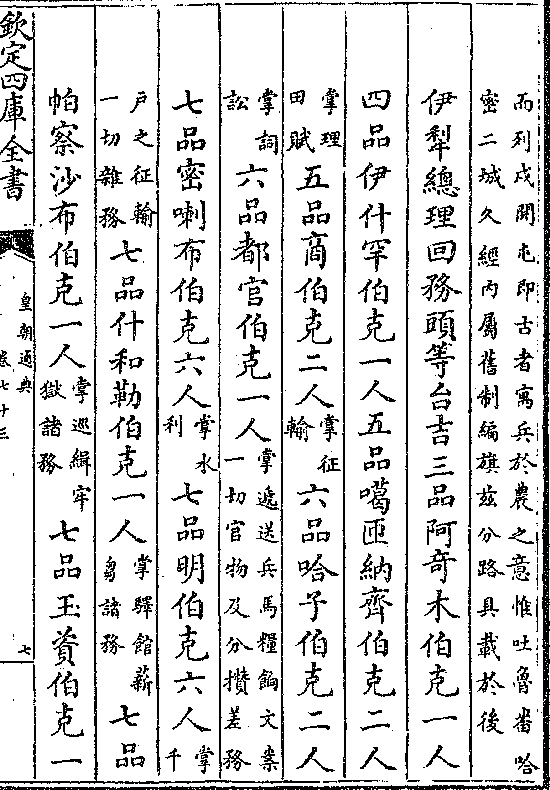 而列戍開屯即古者寓兵於農之意惟吐魯番哈
密二城久經内屬舊制編旗兹分路具載於後
伊犂總理回務頭等台吉三品阿奇木伯克一人
四品伊什罕伯克一人五品噶匝納齊伯克二人
掌理
田賦
五品商伯克二人
掌征
輸
六品哈子伯克二人
掌詞
訟
六品都官伯克一人
掌遞送兵馬糧餉文案
一切官物及分攢差務
七品密喇布伯克六人
掌水
利
七品明伯克六人
掌千
户之征輸
一切雜務
七品什和勒伯克一人
掌驛館薪
芻諸務
七品
帕察沙布伯克一人
掌巡緝牢
獄諸務
七品玉資伯克一
欽定四庫全書
皇朝通典
卷七十三
七